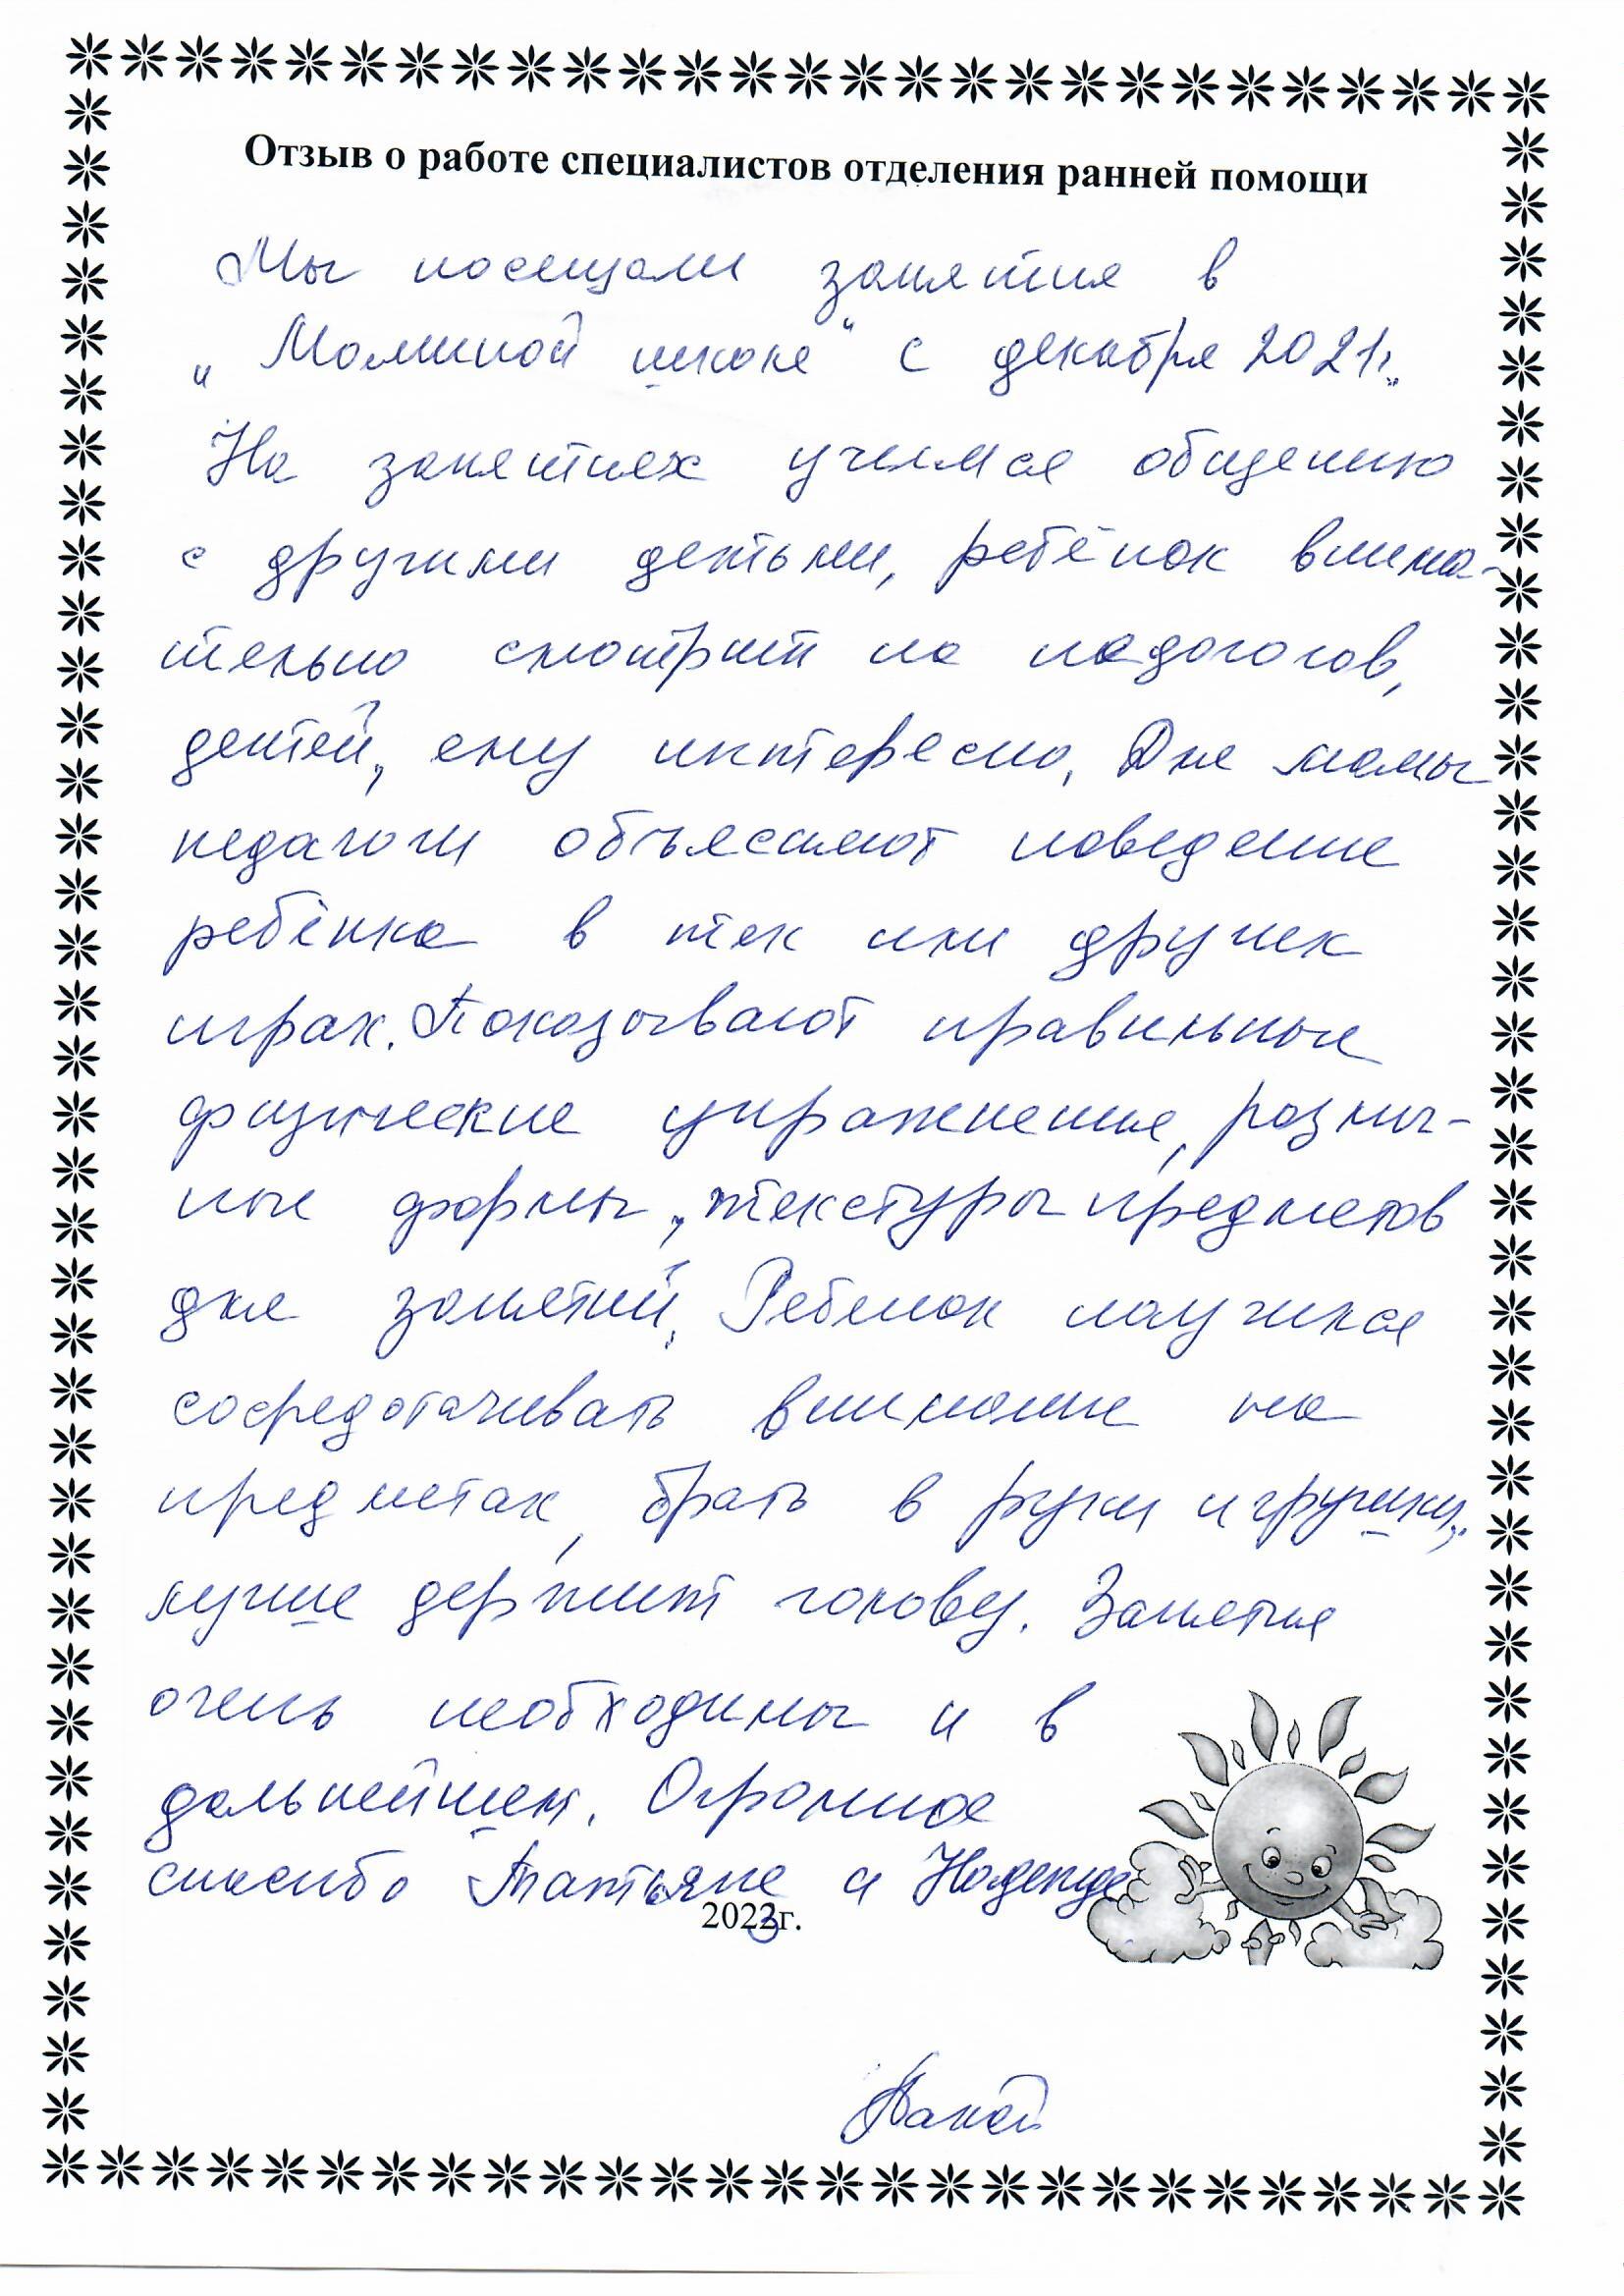 Отзыв о работе специалистов отделения ранней помощи
Мы посещали занятия в
„Маминой школе“ с декабря 2021г.
На занятиях учимся общению
с другими детьми, ребёнок внима-
тельно смотрит на педагогов,
детей, ему интересно. Для мамы
педагоги объясняют поведение
ребёнка в тех или других
играх. Показывают правильные
физические упражнения, различ-
ные формы, текстуры предметов
для занятий. Ребенок научился
сосредотачивать внимание на
предметах, брать в руки игрушки,
лучше держит голову. Занятия
очень необходимы и в
дальнейшем. Огромное
спасибо Татьяне и Надежде
2023г.